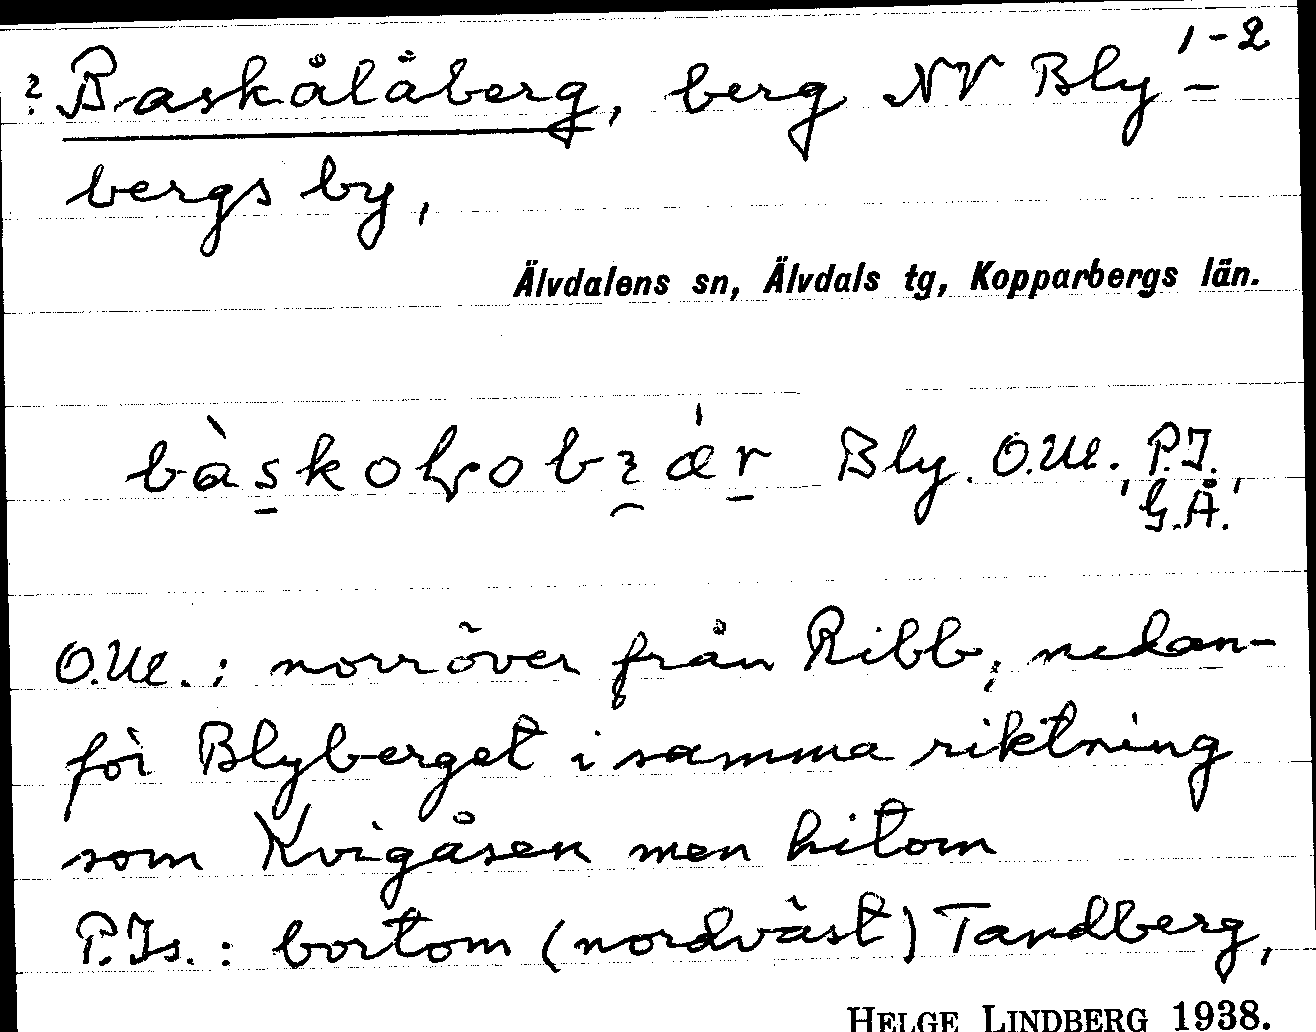 1-2
? Baskålåberg, berg NV Bly-
bergs by,
Älvdalens sn, Älvdals tg, Kopparbergs län.
Bly. O.Ul. P.J.
G.Å.
O.Ul.: norröver från Ribb, nedan-
för Blyberget i samma riktning
som Kvigåsen men hitom
P.Js.: bortom (nordväst) Tandberg,
HELGE LINDBERG 1938.